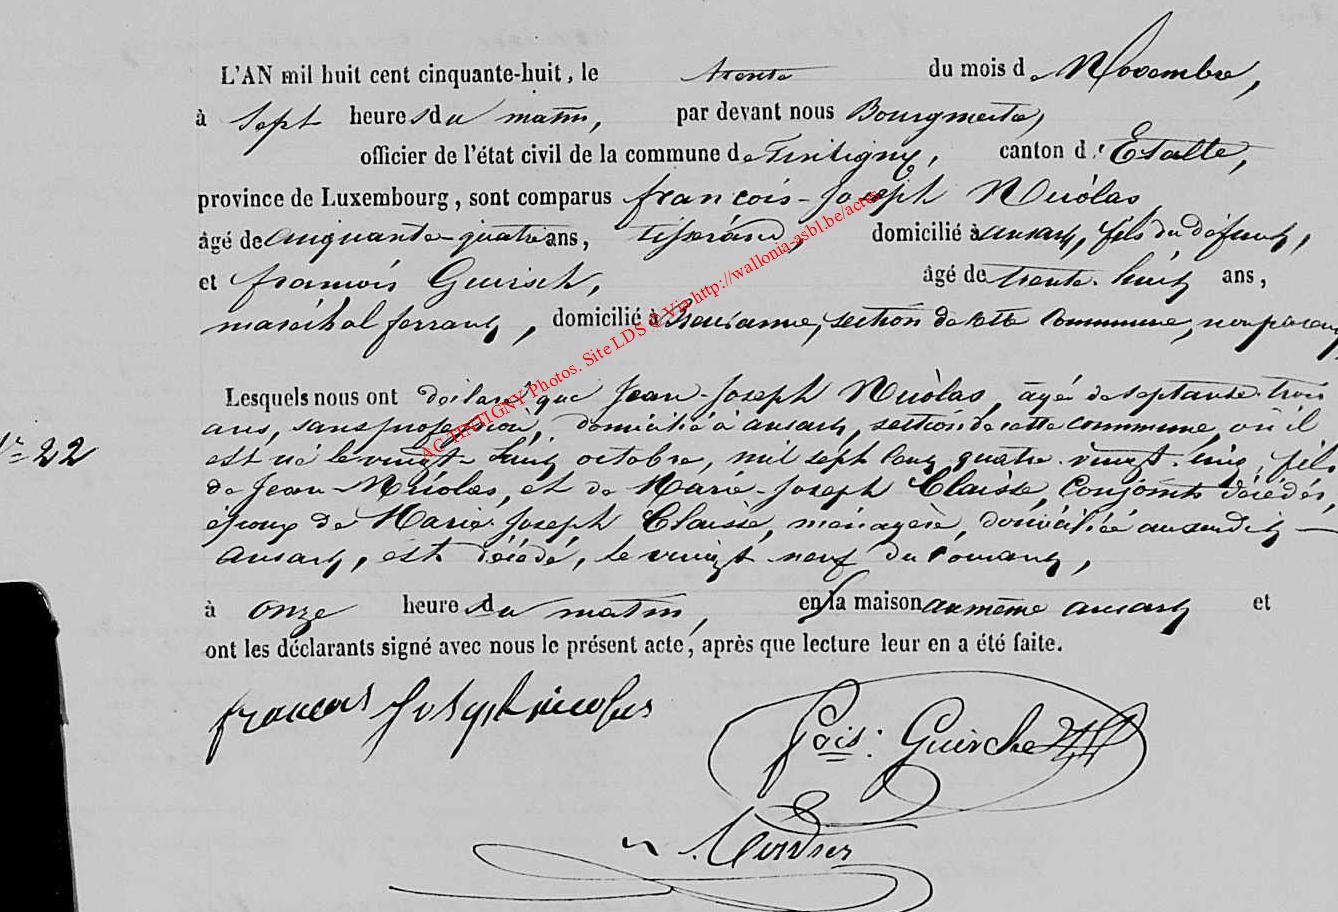 L'AN mil huit cent cinquante-huit, le trente du mois de Novembre,
à Sept heures du matin, par devant nous Bourgmestre,
officier de l'état civil de la commune de Tintigny, canton d'Etalle,
province de Luxembourg, sont comparus françois-Joseph Nicolas
âgé de cinquante-quatre ans, tisserand, domicilié à ansart, fils du défunt,
et françois Guirsch, âgé de trente-huit ans,
maréchal ferrant, domicilié à section de cette Commune, non parent
Lesquels nous ont déclaré que Jean-Joseph Nicolas, agé de septante-trois
ans, sans profession, domicilié à ansart, section de cette commune, où il
est né le vingt-huit octobre, mil sept cent quatre-vingt-cinq, fils
de Jean-Nicolas, et de Marie-Joseph Claisse, Conjoints décédés,
époux de Marie-Joseph Claisse, ménagère, domiciliée au susdit
ansart, est décédé, le vingt neuf du courant,
à onze heures du matin, en sa maison au même ansart et
ont les déclarants signé avec nous le présent acte, après que lecture leur en a été faite.
N° 22
francois Joseph nicolas
fois: Guirche
AC TINTIGNY Photos. Site LDS © Via http://wallonia-asbl.be/actes